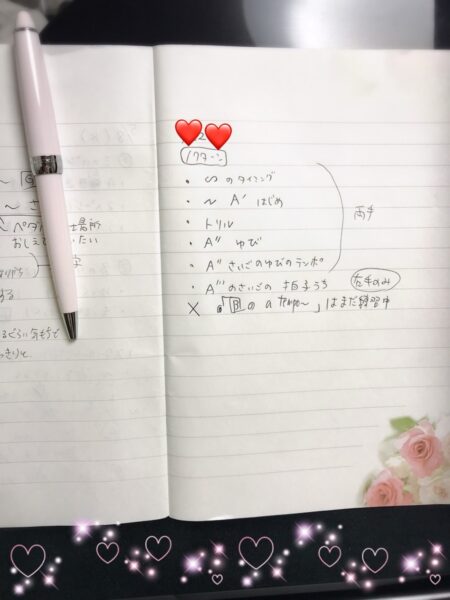 ~ B
~ さ
~ ペダ 場所
おしえ たい
字
る
るぐらい気もちで
っきりと
2
ノクターン
・ ∽ のタイミング
・ ~ A' はじめ
・ トリル
・ A'' ゆび
・ A'' さいごのゆびのテンポ
両手
・ A''' のさいごの 拍子うち 右手のみ
× 「B の a tempo~」はまだ練習中